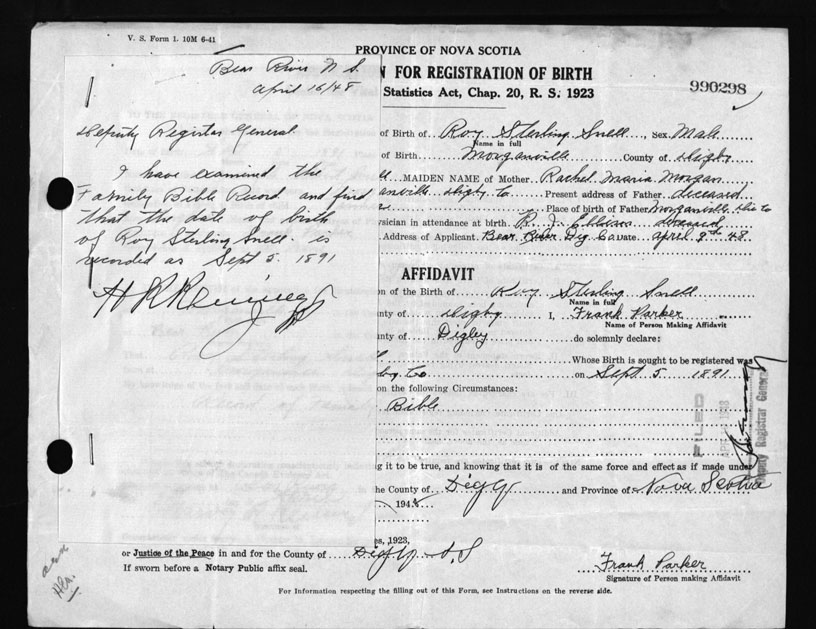 V. S. Form 1. 10M 6-41
PROVINCE OF NOVA SCOTIA
N FOR REGISTRATION OF BIRTH
Statistics Act, Chap. 20, R. S. 1923
990298
Bear River N S.
April 16/48
Deputy Register General
I have examined the
Family Bible Record and find
that the date of birth
of Roy Sterling Snell is
recorded as Sept 5. 1891
of Birth of Roy Sterling Snell, Sex Male
Name in full
of Birth Morganville County of Digby
MAIDEN NAME of Mother Rachel Maria Morgan
anville Digby Co Present address of Father deceased
Place of birth of Father Morganville Dig Co
ysician in attendance at birth R. J. deceased
Address of Applicant Bear River Dig Co Date April 9th 48
AFFIDAVIT
on of the Birth of Roy Sterling Snell
Name in full
unty of Digby I, Frank Parker
Name of Person Making Affidavit
unty of Digby do solemnly declare:
Whose Birth is sought to be registered was
by Co on Sept 5 1891
on the following Circumstances:
Bible
FILED
Deputy Registrar General
g it to be true, and knowing that it is of the same force and effect as if made under
he County of Digby and Province of Nova Scotia
194
es, 1923,
or Justice of the Peace in and for the County of Digby N.S
If sworn before a Notary Public affix seal.
Frank Parker
Signature of Person making Affidavit
For Information respecting the filling out of this Form, see Instructions on the reverse side.